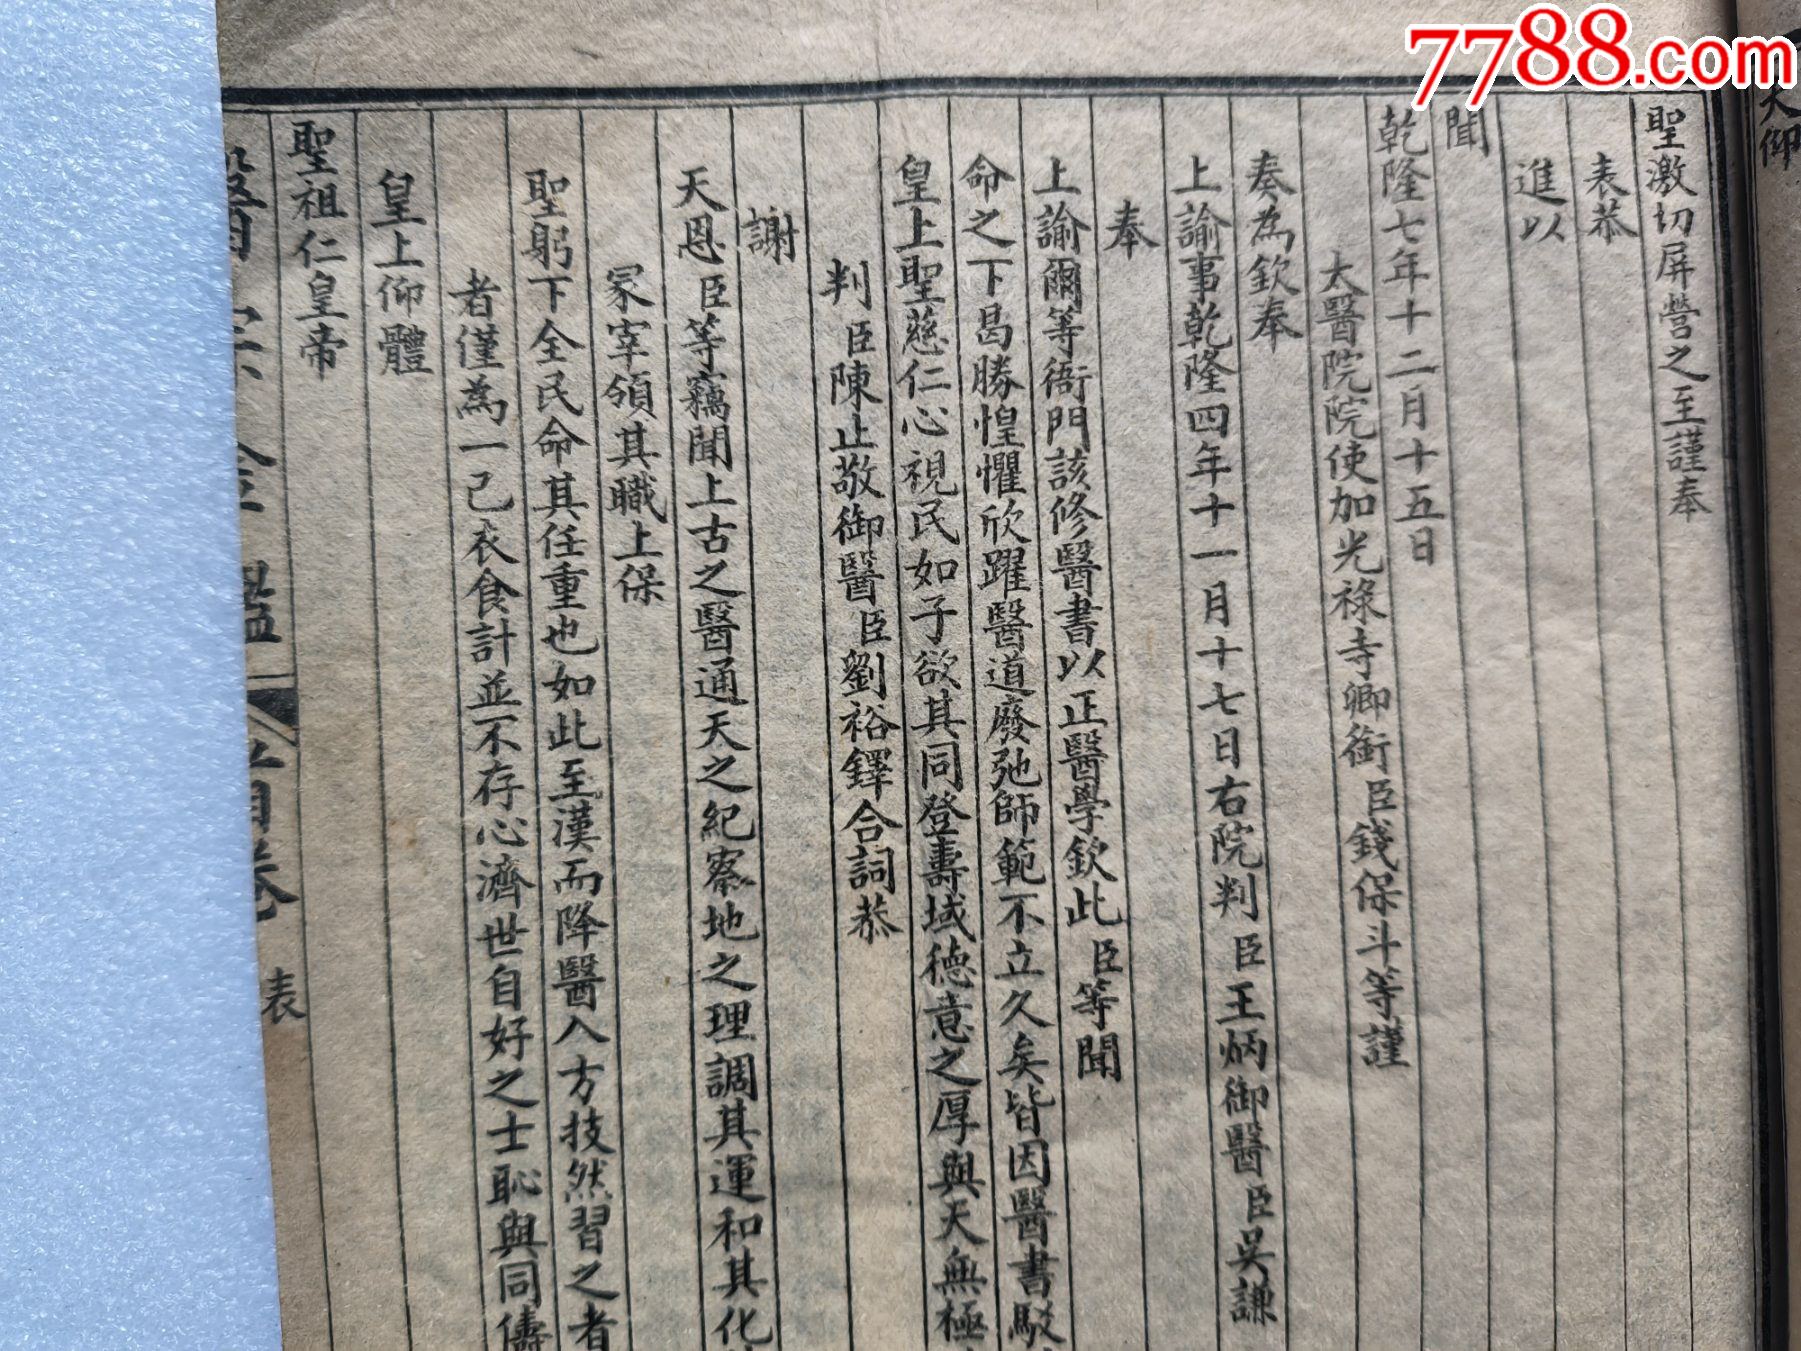 7788.com
天仰
聖激切屏營之至謹奉
表恭
進以
聞
乾隆七年十二月十五日
太醫院院使加光祿寺卿銜臣錢保斗等謹
奏為欽奉
上諭事乾隆四年十一月十七日右院判臣王炳御醫臣吳謙
奉
上諭爾等衙門該修醫書以正醫學欽此臣等聞
命之下曷勝惶懼欣躍醫道廢弛師範不立久矣皆因醫書駁
皇上聖慈仁心視民如子欲其同登壽域德意之厚與天無極
判臣陳止敬御醫臣劉裕鐸合詞恭
謝
天恩臣等竊聞上古之醫通天之紀察地之理調其運和其化
冢宰領其職上保
聖躬下全民命其任重也如此至漢而降醫入方技然習之者
者僅為一己衣食計並不存心濟世自好之士恥與同儔
皇上仰體
聖祖仁皇帝
醫宗金鑑 首卷 表